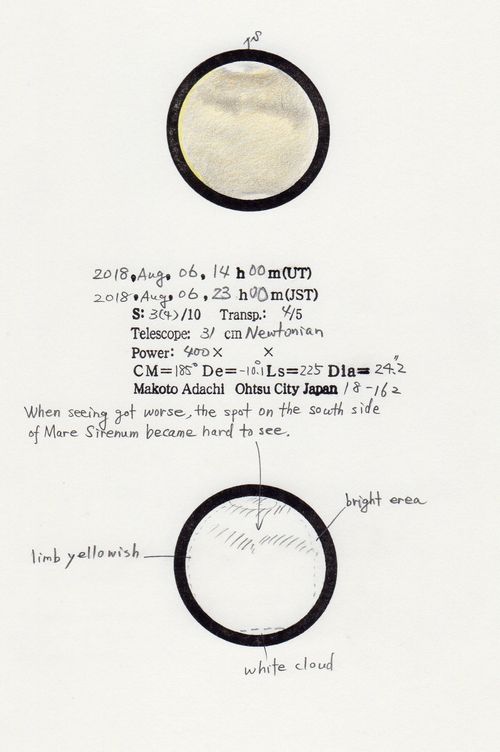 S
2018, Aug. 06, 14 h 00 m (UT)
2018, Aug. 06, 23 h 00 m (JST)
S: 3(4)/10 Transp.: 4/5
Telescope: 31 cm Newtonian
Power: 400× ×
CM=185° De=-10.°1 Ls=225 Dia=24."2
Makoto Adachi Ohtsu City Japan 18-162
When seeing got worse, the spot on the south side
of Mare Sirenum became hard to see.
bright erea
limb yellowish
white cloud